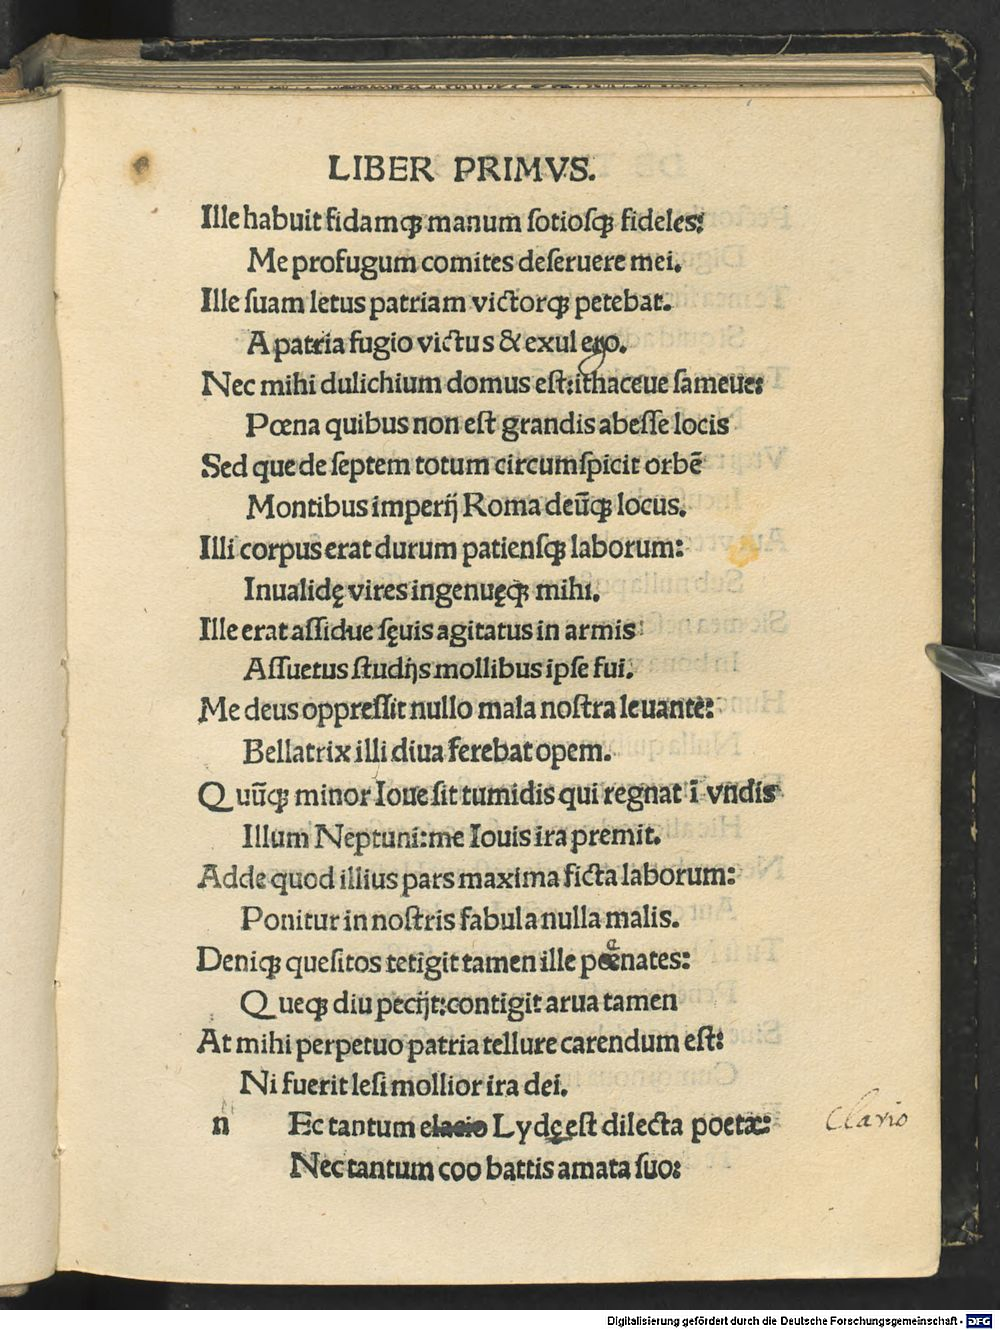 LIBER PRIMVS.
Ille habuit fidamqꝫ manum ſotioſqꝫ fideles:
Me profugum comites deſeruere mei.
Ille ſuam letus patriam victorqꝫ petebat.
A patria fugio victus & exul ego.
Nec mihi dulichium domus eſt: ithaceue ſameue:
Pœna quibus non eſt grandis abeſſe locis
Sed que de ſeptem totum circumſpicit orbē
Montibus imperĳ Roma deūqꝫ locus.
Illi corpus erat durum patienſqꝫ laborum:
Inualidę vires ingenuęqꝫ mihi.
Ille erat aſſidue ſęuis agitatus in armis
Aſſuetus ſtudĳs mollibus ipſe fui.
Me deus oppreſſit nullo mala noſtra leuante:
Bellatrix illi diua ferebat opem.
Quūqꝫ minor Ioue ſit tumidis qui regnat ī vndis
Illum Neptuni: me Iouis ira premit.
Adde quod illius pars maxima ficta laborum:
Ponitur in noſtris fabula nulla malis.
Deniqꝫ queſitos tetigit tamen ille pœnates:
e
Queqꝫ diu pecĳt: contigit arua tamen
At mihi perpetuo patria tellure carendum eſt:
Ni fuerit leſi mollior ira dei.
n Ec tantum elacio Lydę eſt dilecta poetæ: Clario
Nec tantum coo battis amata ſuo:
Digitalisierung gefördert durch die Deutsche Forschungsgemeinschaft - DFG